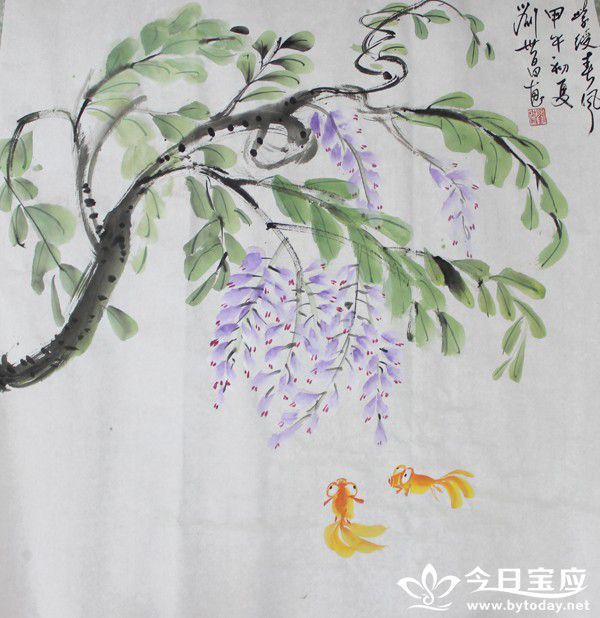 紫绶春风
甲午初夏
刘世昌画
今日宝应
www.bytoday.net